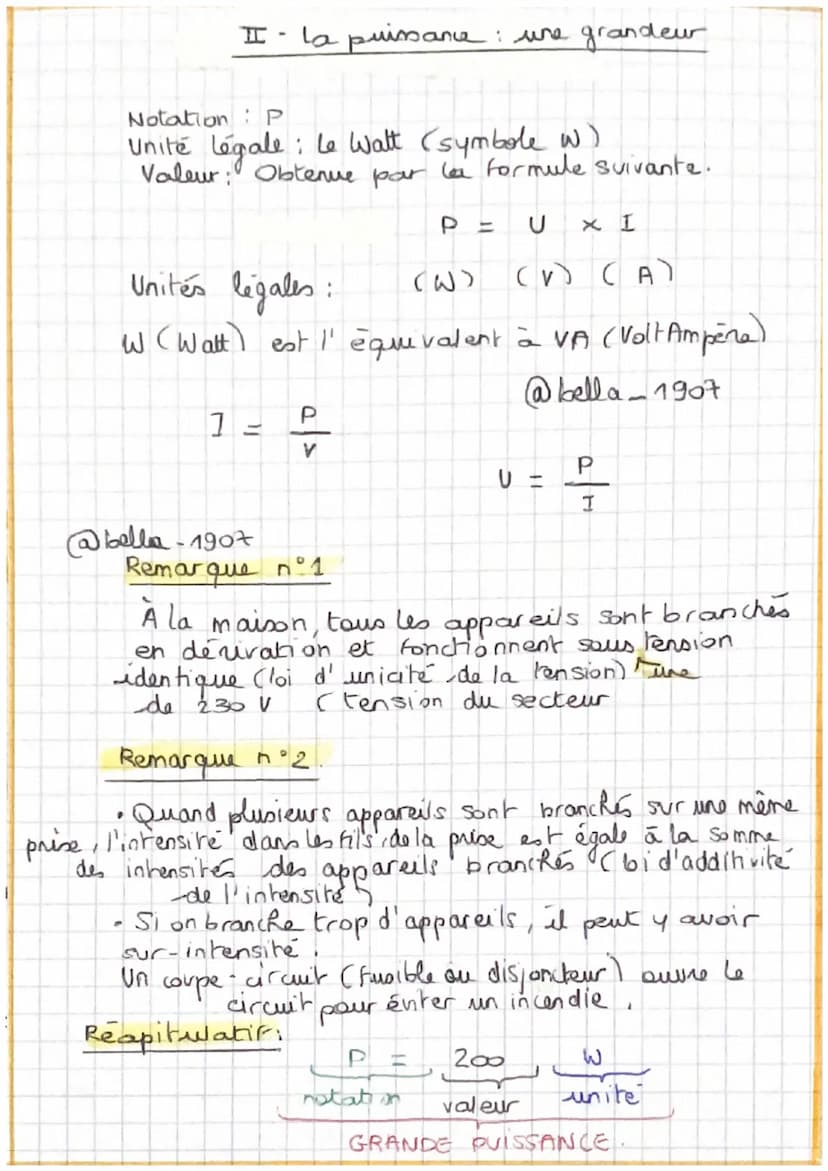 II - La puissance : une grandeur
Notation : P
Unité légale : Le Watt (symbole W)
Valeur : Obtenue par la formule suivante.
P = U x I
Unités légales : (W) (V) (A)
W (Watt) est l'équivalent à VA (Volt Ampère)
@bella_1907
I = P / V
U = P / I
@bella-1907
Remarque n°1
À la maison, tous les appareils sont branchés
en dérivation et fonctionnent sous tension
identique (loi d'unicité de la tension) une
de 230 V (tension du secteur
Remarque n°2.
• Quand plusieurs appareils sont branchés sur une même
prise, l'intensité dans les fils de la prise est égale à la somme
des intensités des appareils branchés (loi d'additivité
de l'intensité)
• Si on branche trop d'appareils, il peut y avoir
sur-intensité.
Un coupe-circuit (fusible ou disjoncteur) ouvre le
circuit pour éviter un incendie.
Réapitulatif :
P = 200 W
notation valeur unité
GRANDE PUISSANCE.